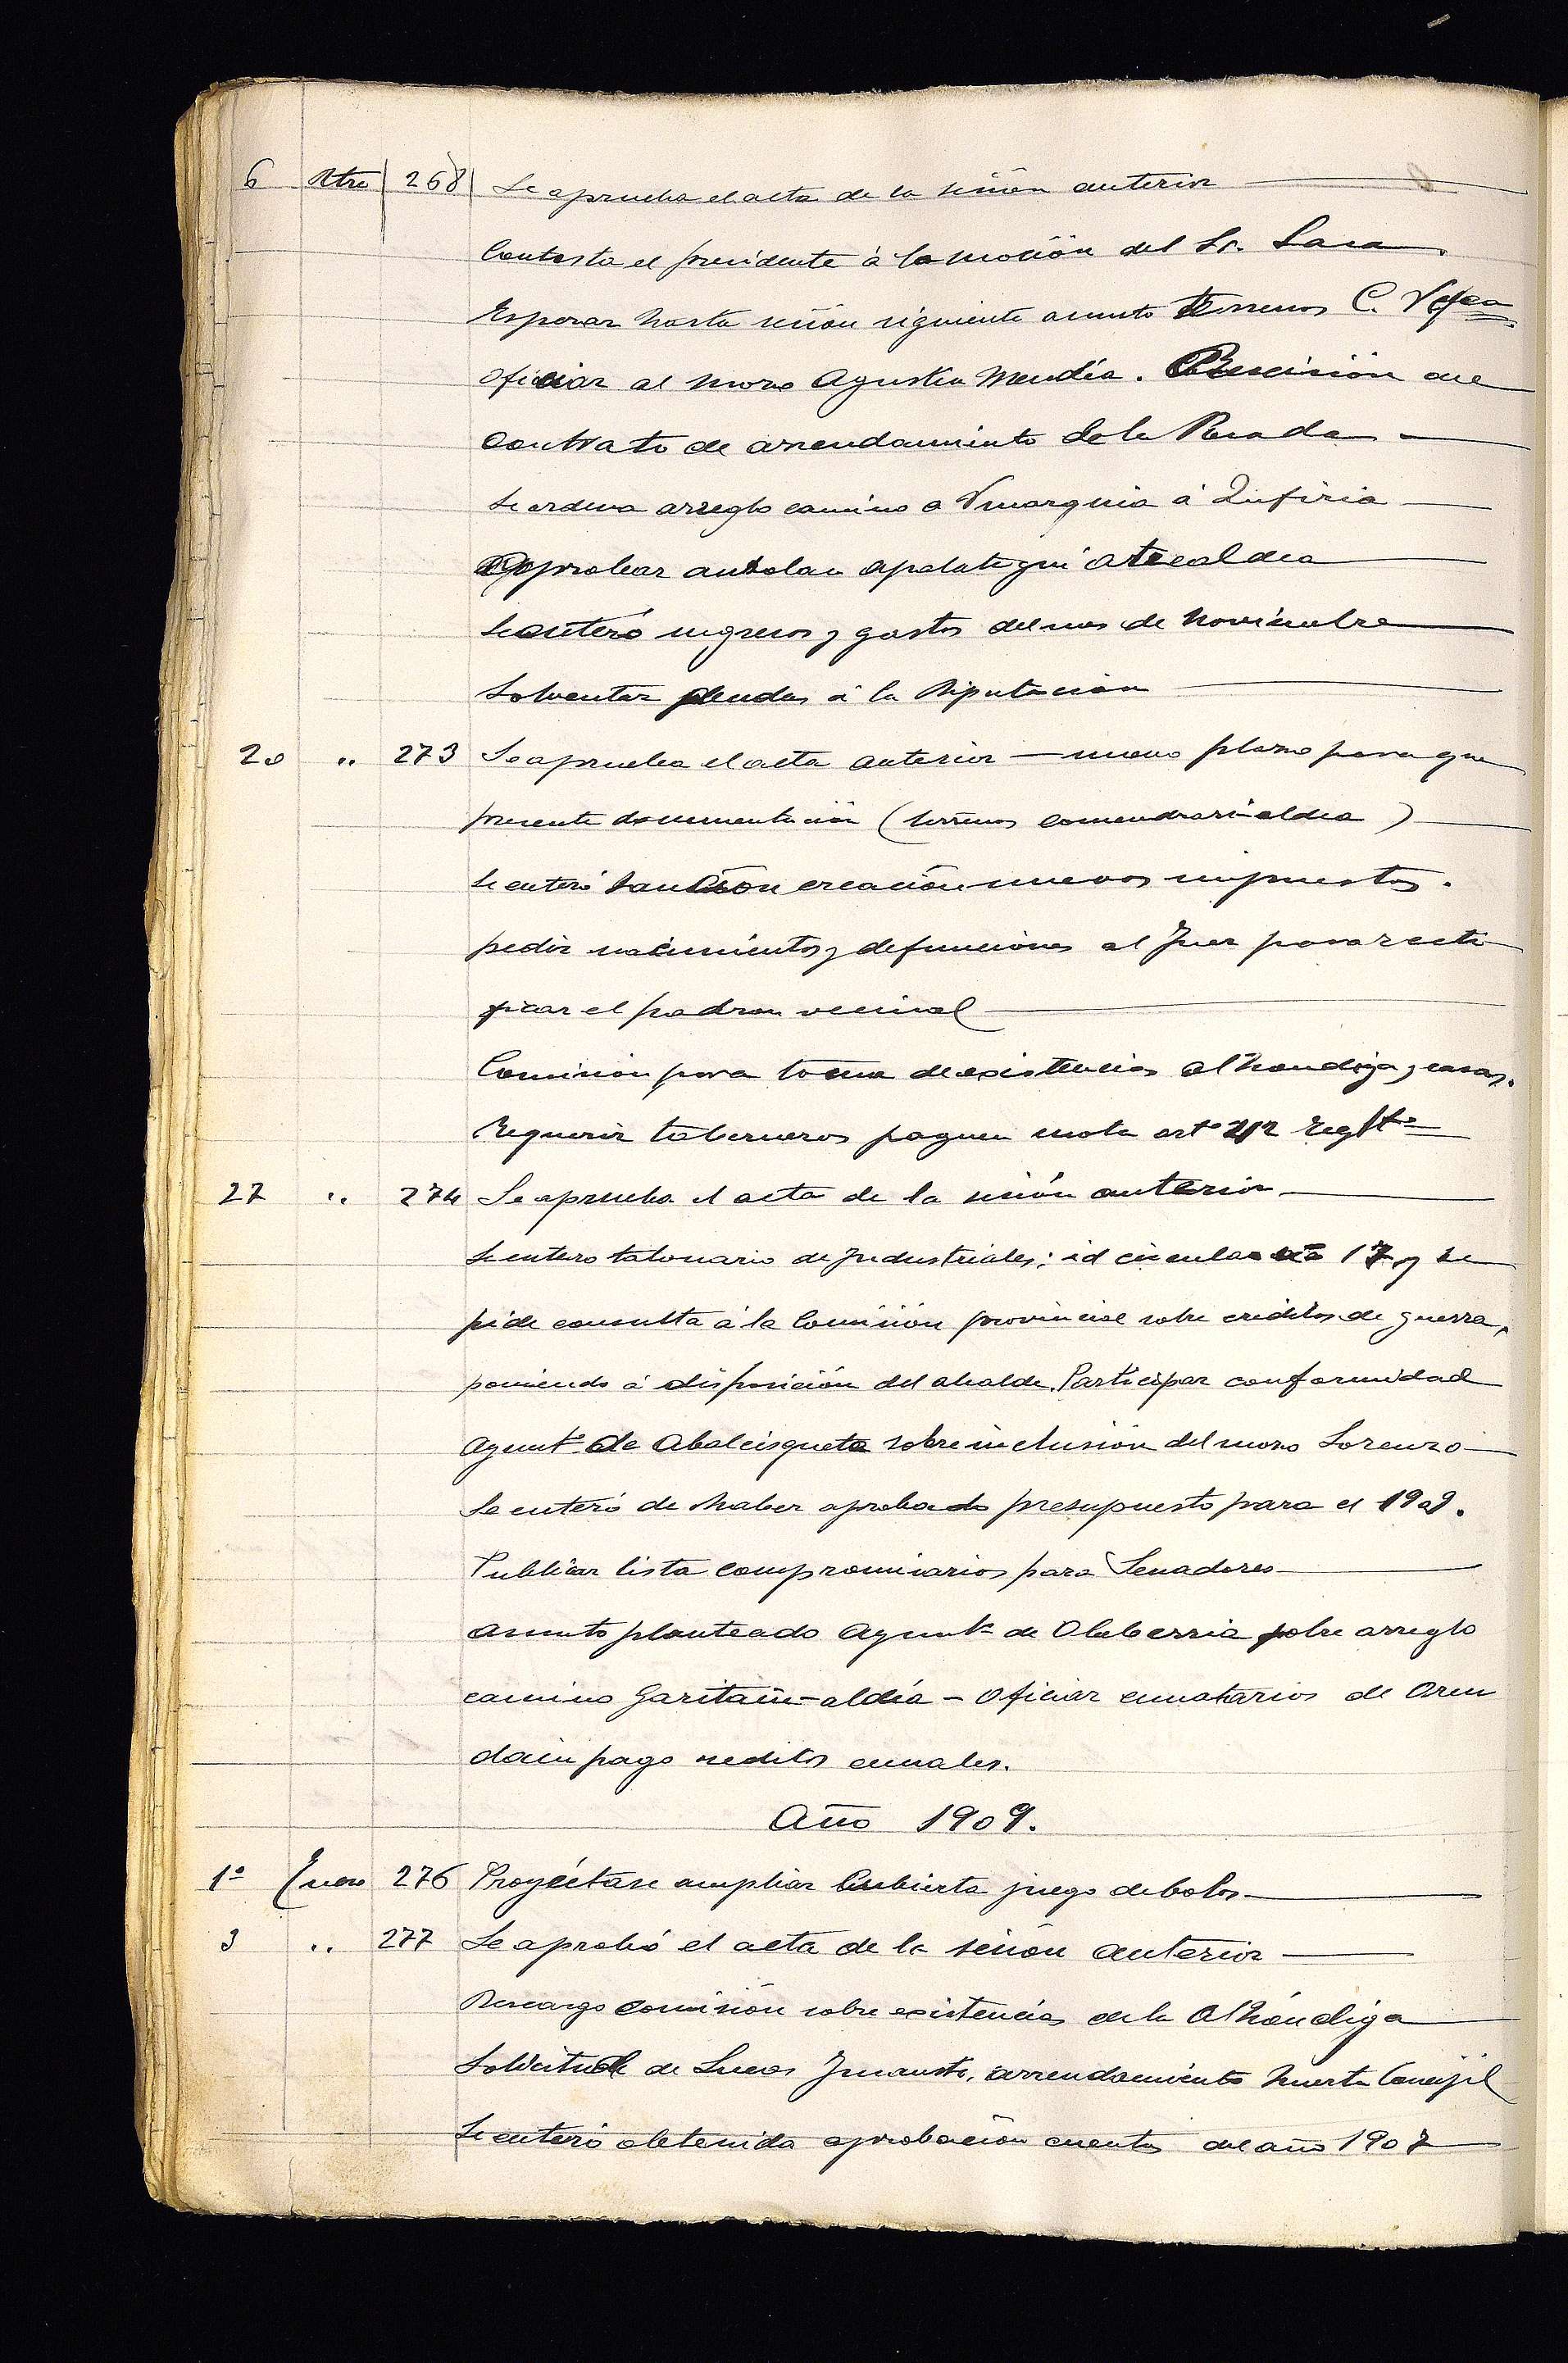 6 Dbre 268 Se aprueba el acta de la sesión anterior
Contesta el presidente á la moción del Sr. Lasa
Esperar hasta sesión siguiente asunto terrenos C.
Oficiar al mozo Agustin Mendía. Rescisión de
contrato de arrendamiento de la Posada
Se ordena arreglo camino
Aprobar
Se enteró ingresos y gastos del mes de Noviembre
Solventar deudas á la Diputación
20 " 273 Se aprueba el acta anterior — nuevo plazo para que
presente documentación (terrenos comendrari-aldea)
Se enteró sanción creación nuevos impuestos.
pedir nacimientos y defunciones al Juez para recti
ficar el padron vecinal
Comisión para toma de existencias alhondiga y casas.
Requerir taberneros paguen multa artº 42 Reglto
27 " 274 Se aprueba el acta de la sesión anterior
Se enteró talonario de Industriales; id circular nº 17 y se
pide consulta á la Comisión provincial sobre creditos de guerra,
poniendo á disposición del alcalde. Participar conformidad
Ayuntº de Abalcisqueta sobre inclusión del mozo Lorenzo
Se enteró de haber aprobado presupuesto para el 1909.
Publicar lista compromisarios para Senadores
Asunto planteado Ayuntº de Olaberria sobre arreglo
camino Garitain-aldía – Oficiar censatarios de Oren
dain pago reditos censales.
Año 1909.
1º Enero 276 Proyéctase ampliar Cubierta juego de bolos
3 " 277 Se aprobó el acta de la sesión anterior
Descargo comisión sobre existencias de la Alhóndiga
Solicitud de Lucas Insausti, arrendamiento huerta Concejil
Se enteró obtenida aprobación cuentas del año 1907